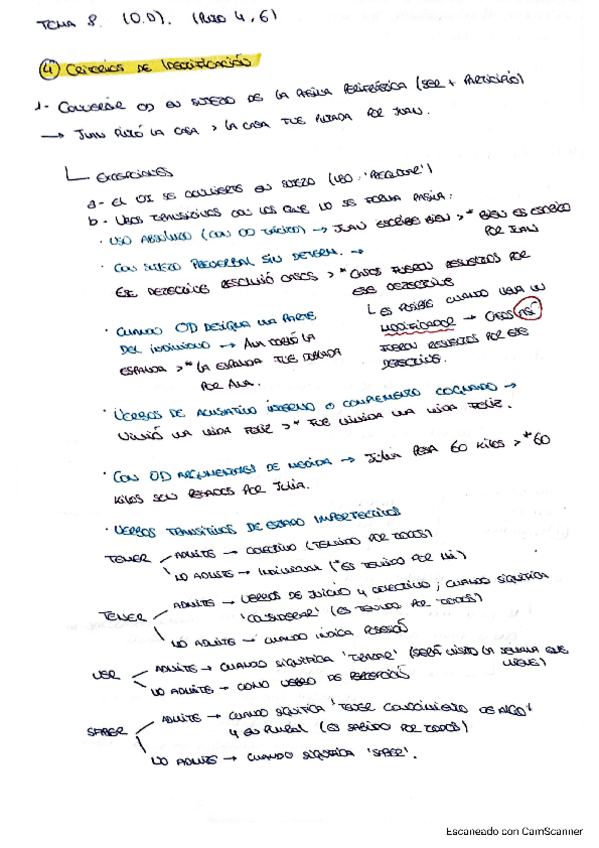 TEMA 8. (O.D). (PUNTO 4, 6)
④ CRITERIOS DE IDENTIFICACIÓN
1- CONVERTIR OD EN SUJETO DE LA PASIVA PERIFRÁSTICA (SER + PARTICIPIO)
→ JUAN PINTÓ LA CASA > LA CASA FUE PINTADA POR JUAN.
EXCEPCIONES
a- EL OI SE CONVIERTE EN SUJETO (USO: 'PREGUNTAR')
b- USOS TRANSITIVOS CON LOS QUE NO SE FORMA PASIVA:
· USO ABSOLUTO (CON OD TÁCITO) → JUAN ESCRIBE BIEN > * BIEN ES ESCRITO
POR JUAN
· CON SUJETO PREVERBAL SIN DETERM. →
ESE DETECTIVE RESOLVIÓ CASOS > * CASOS FUERON RESUELTOS POR
ESE DETECTIVE
ES POSIBLE CUANDO LLEVA UN
MODIFICADOR → CASOS ASÍ
FUERON RESUELTOS POR ESE
DETECTIVE.
· CUANDO OD DESIGNA UNA PARTE
DEL INDIVIDUO → ANA DOBLÓ LA
ESPALDA > * LA ESPALDA FUE DOBLADA
POR ANA.
· VERBOS DE ACUSATIVO INTERNO O COMPLEMENTO COGNADO →
VIVIÓ UNA VIDA FELIZ > * FUE VIVIDA UNA VIDA FELIZ.
· CON OD ARGUMENTALES DE MEDIDA → JULIA PESA 60 KILOS > * 60
KILOS SON PESADOS POR JULIA.
· VERBOS TRANSITIVOS DE ESTADO IMPERFECTIVOS
TEMER
ADMITE → COLECTIVO (TEMIDO POR TODOS)
NO ADMITE → INDIVIDUAL (* ES TEMIDO POR MÍ)
TENER
ADMITE → VERBOS DE JUICIO Y COLECTIVO; CUANDO SIGNIFICA
'CONSIDERAR' (ES TENIDO POR TODOS)
NO ADMITE → CUANDO INDICA POSESIÓN
VER
ADMITE → CUANDO SIGNIFICA 'TRATAR' (SERÁ VISTO LA SEMANA QUE
VIENE)
NO ADMITE → COMO VERBO DE PERCEPCIÓN
SABER
ADMITE → CUANDO SIGNIFICA 'TENER CONOCIMIENTO DE ALGO'
Y EN PLURAL (ES SABIDO POR TODOS)
NO ADMITE → CUANDO SIGNIFICA 'SABER'.
Escaneado con CamScanner